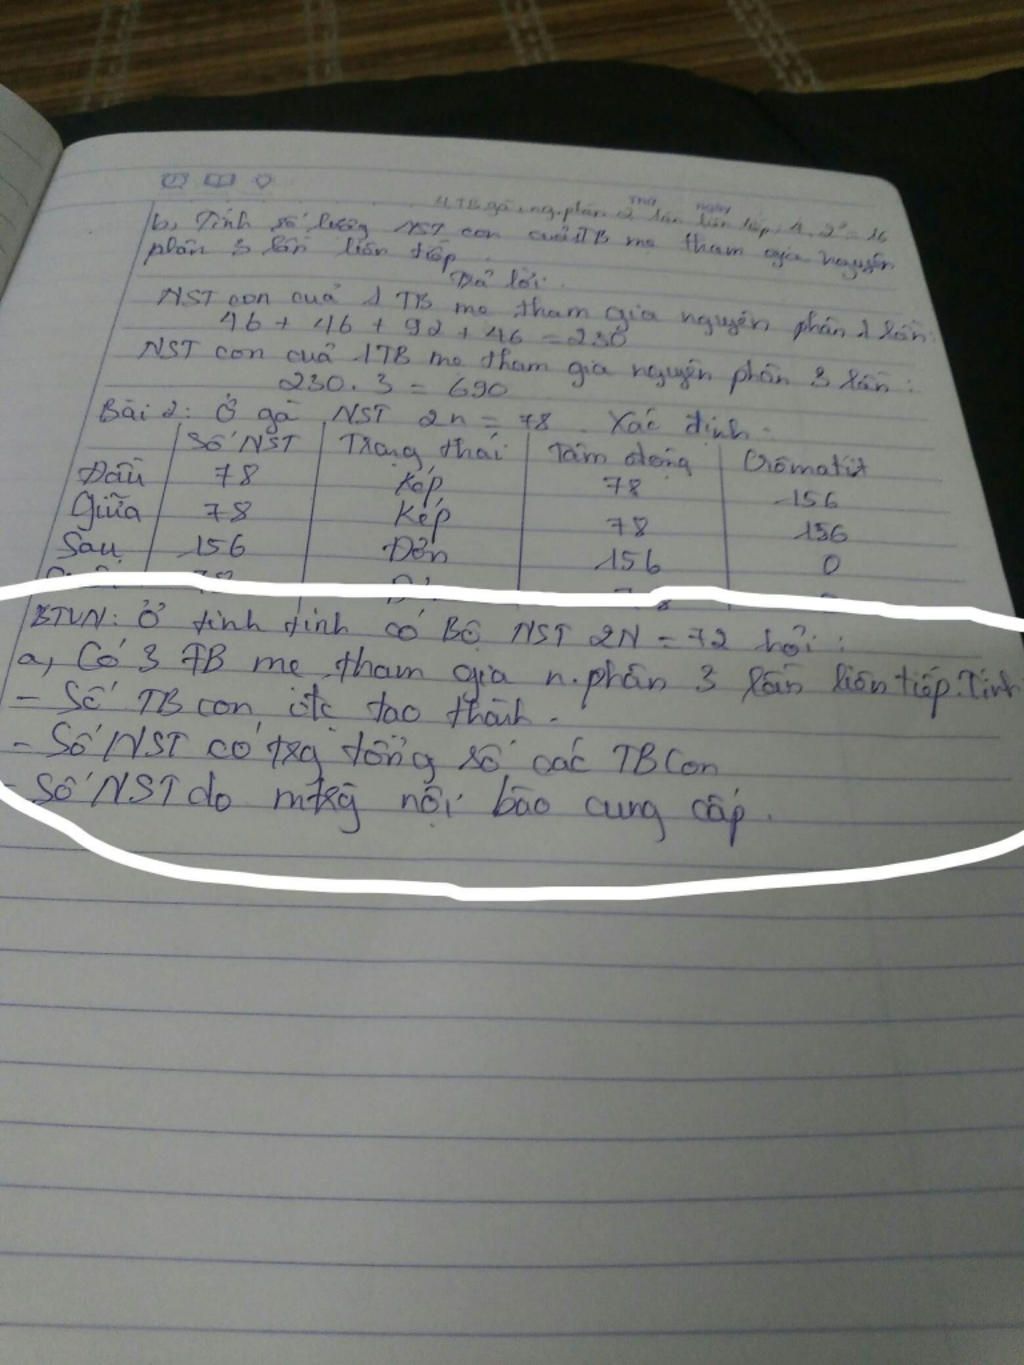 Thứ ngày
4 TB gà, ng.phân 2 lần liên tiếp, 4.2² = 16
b, Tính số lượng NST con của 1TB mẹ tham gia nguyên
phân 3 lần liên tiếp
Trả lời:
NST con cuả 1 TB mẹ tham gia nguyên phân 1 lần:
46 + 46 + 92 + 46 = 230
NST con cuả 1TB mẹ tham gia nguyên phân 3 lần:
230. 3 = 690
Bài 2: Ở gà NST 2n = 78. Xác định:
Số NST Trạng thái Tâm động Crômatit
Đầu 78 Kép 78 156
Giữa 78 Kép 78 156
Sau 156 Đơn 156 0
BTVN: Ở tinh tinh có Bộ NST 2N = 72 hỏi:
a, Có 3 TB mẹ tham gia n.phân 3 lần liên tiếp. Tính
- Số TB con đc tạo thành.
- Số NST có trg tổng số các TB Con
- Số NST do mtrg nội bào cung cấp.